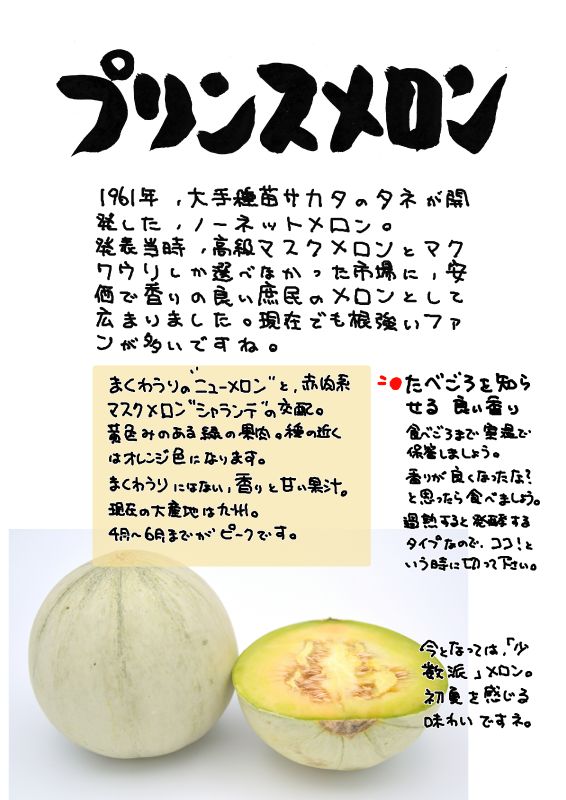 プリンスメロン
1961年,大手種苗サカタのタネが開
発した,ノーネットメロン。
発表当時,高級マスクメロンとマク
ワウリしか選べなかった市場に,安
価で香りの良い庶民のメロンとして
広まりました。現在でも根強いファ
ンが多いですね。
まくわうりの"ニューメロン"と,赤肉系
マスクメロン"シャランテ"の交配。
黄色みのある緑の果肉。種の近く
はオレンジ色になります。
まくわうりにはない,香りと甘い果汁。
現在の大産地は九州。
4月〜6月までがピークです。
たべごろを知ら
せる良い香り
食べごろまで室温で
保管しましょう。
香りが良くなったな?
と思ったら食べましょう。
過熟すると発酵する
タイプなので、ココ!と
いう時に切って下さい。
今となっては,「少
数派」メロン。
初夏を感じる
味わいですネ。